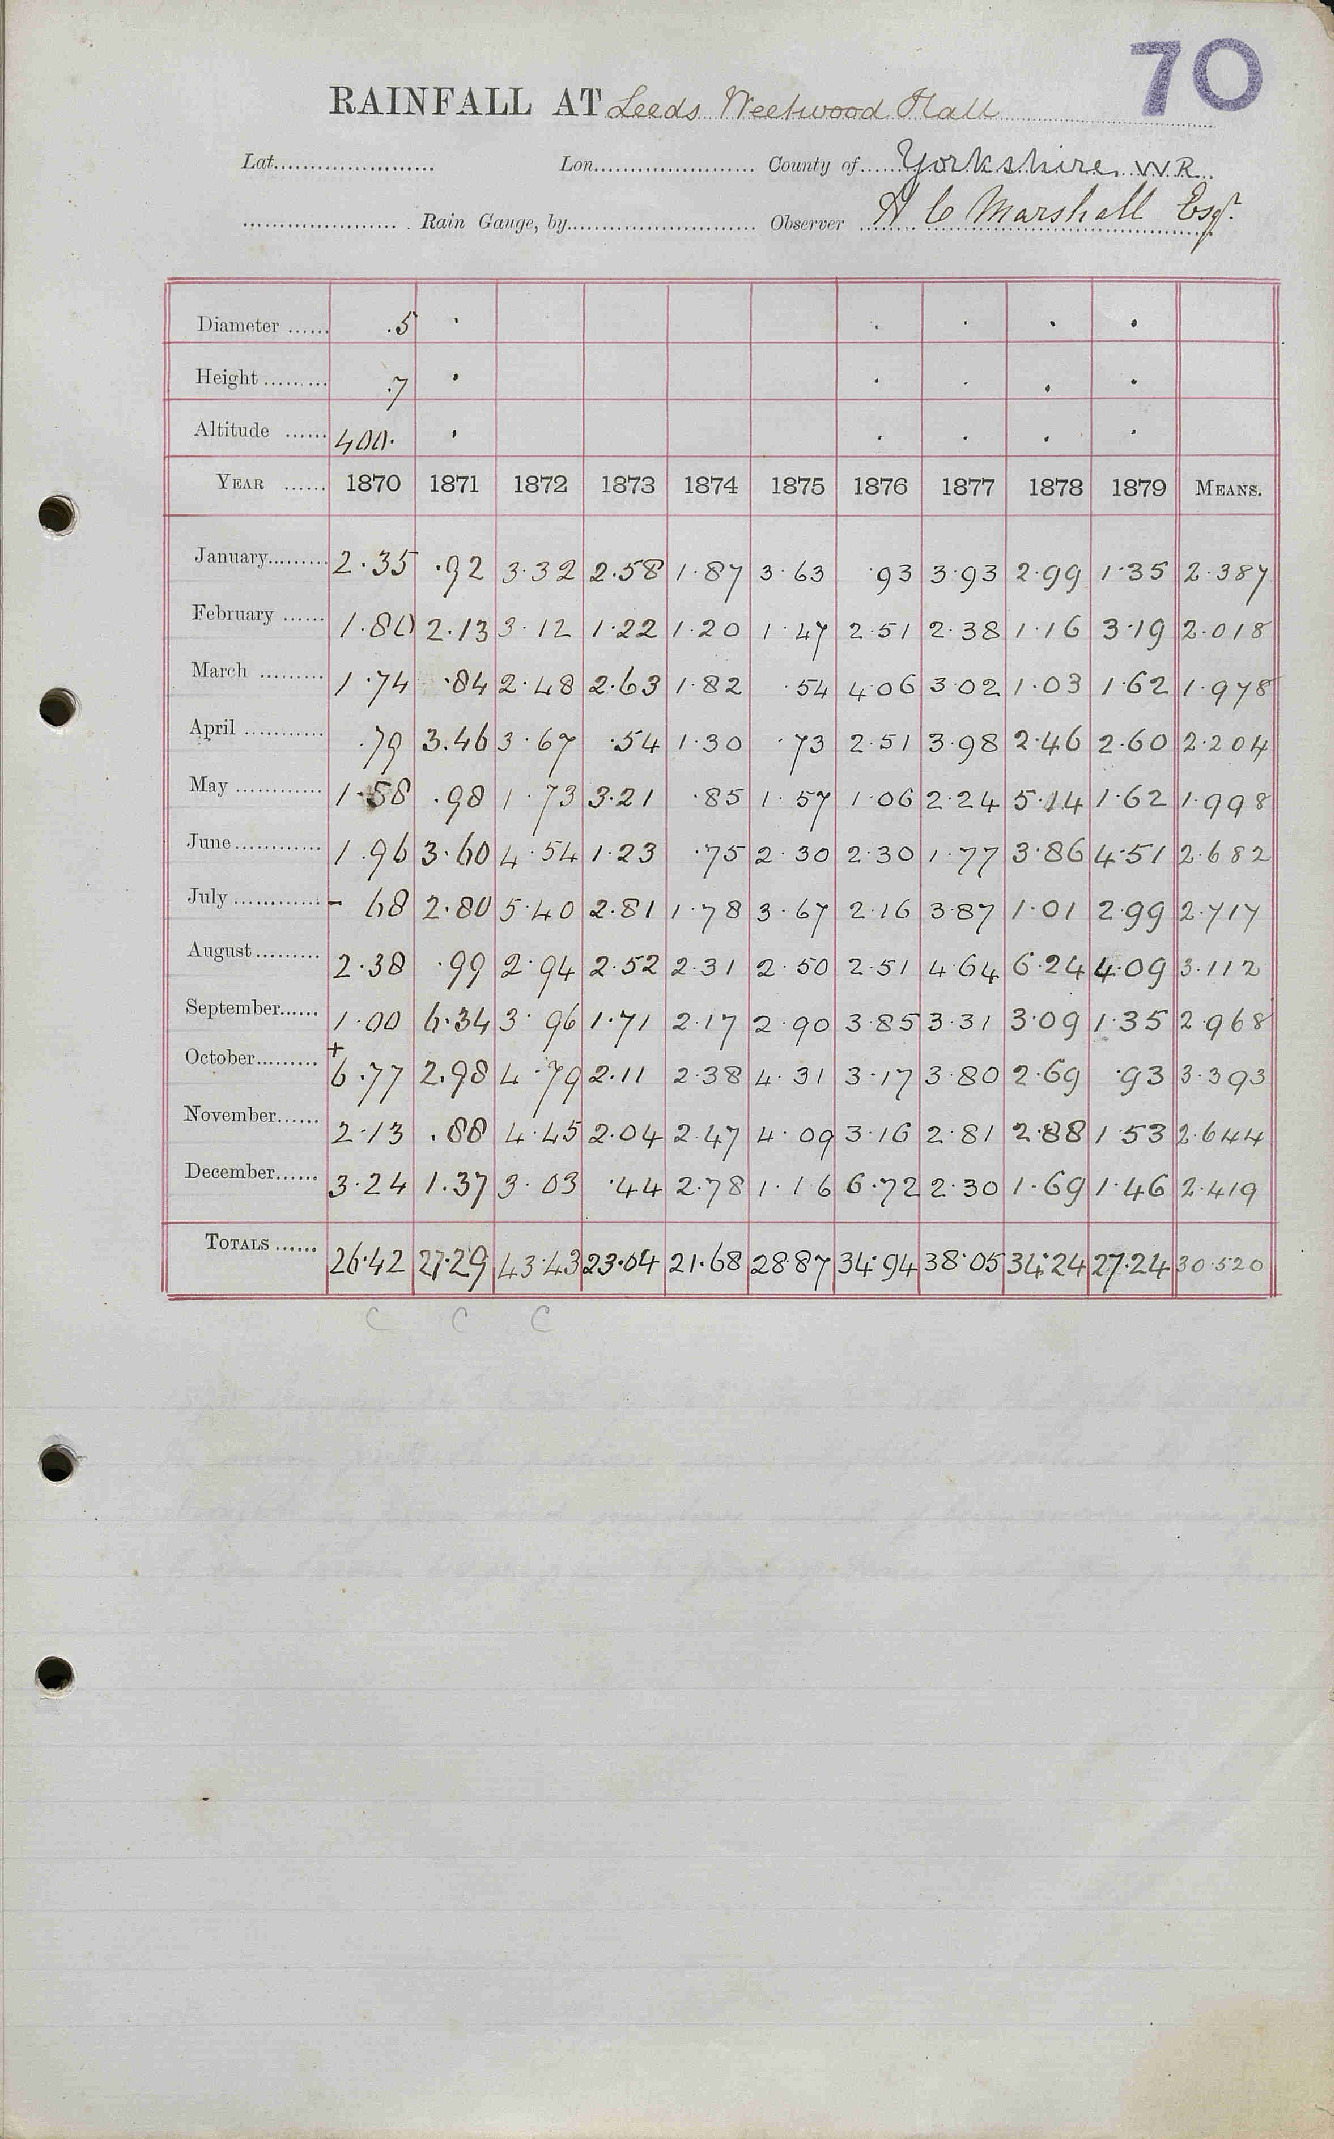 70
RAINFALL AT Leeds Weetwood Hall
Lat. Lon. County of Yorkshire W R
Rain Gauge, by Observer H C Marshall Esqr.
Diameter 5
Height 7
Altitude 400
YEAR 1870 1871 1872 1873 1874 1875 1876 1877 1878 1879 MEANS.
January 2.35 .92 3.32 2.58 1.87 3.63 .93 3.93 2.99 1.35 2.387
February 1.80 2.13 3.12 1.22 1.20 1.47 2.51 2.38 1.16 3.19 2.018
March 1.74 .84 2.48 2.63 1.82 .54 4.06 3.02 1.03 1.62 1.978
April .79 3.46 3.67 .54 1.30 .73 2.51 3.98 2.46 2.60 2.204
May 1.58 .98 1.73 3.21 .85 1.57 1.06 2.24 5.14 1.62 1.998
June 1.96 3.60 4.54 1.23 .75 2.30 2.30 1.77 3.86 4.51 2.682
July - 68 2.80 5.40 2.81 1.78 3.67 2.16 3.87 1.01 2.99 2.717
August 2.38 .99 2.94 2.52 2.31 2.50 2.51 4.64 6.24 4.09 3.112
September 1.00 6.34 3.96 1.71 2.17 2.90 3.85 3.31 3.09 1.35 2.968
October + 6.77 2.98 4.79 2.11 2.38 4.31 3.17 3.80 2.69 .93 3.393
November 2.13 .88 4.45 2.04 2.47 4.09 3.16 2.81 2.88 1.53 2.644
December 3.24 1.37 3.03 .44 2.78 1.16 6.72 2.30 1.69 1.46 2.419
TOTALS 26.42 27.29 43.43 23.04 21.68 28.87 34.94 38.05 34.24 27.24 30.520
C C C